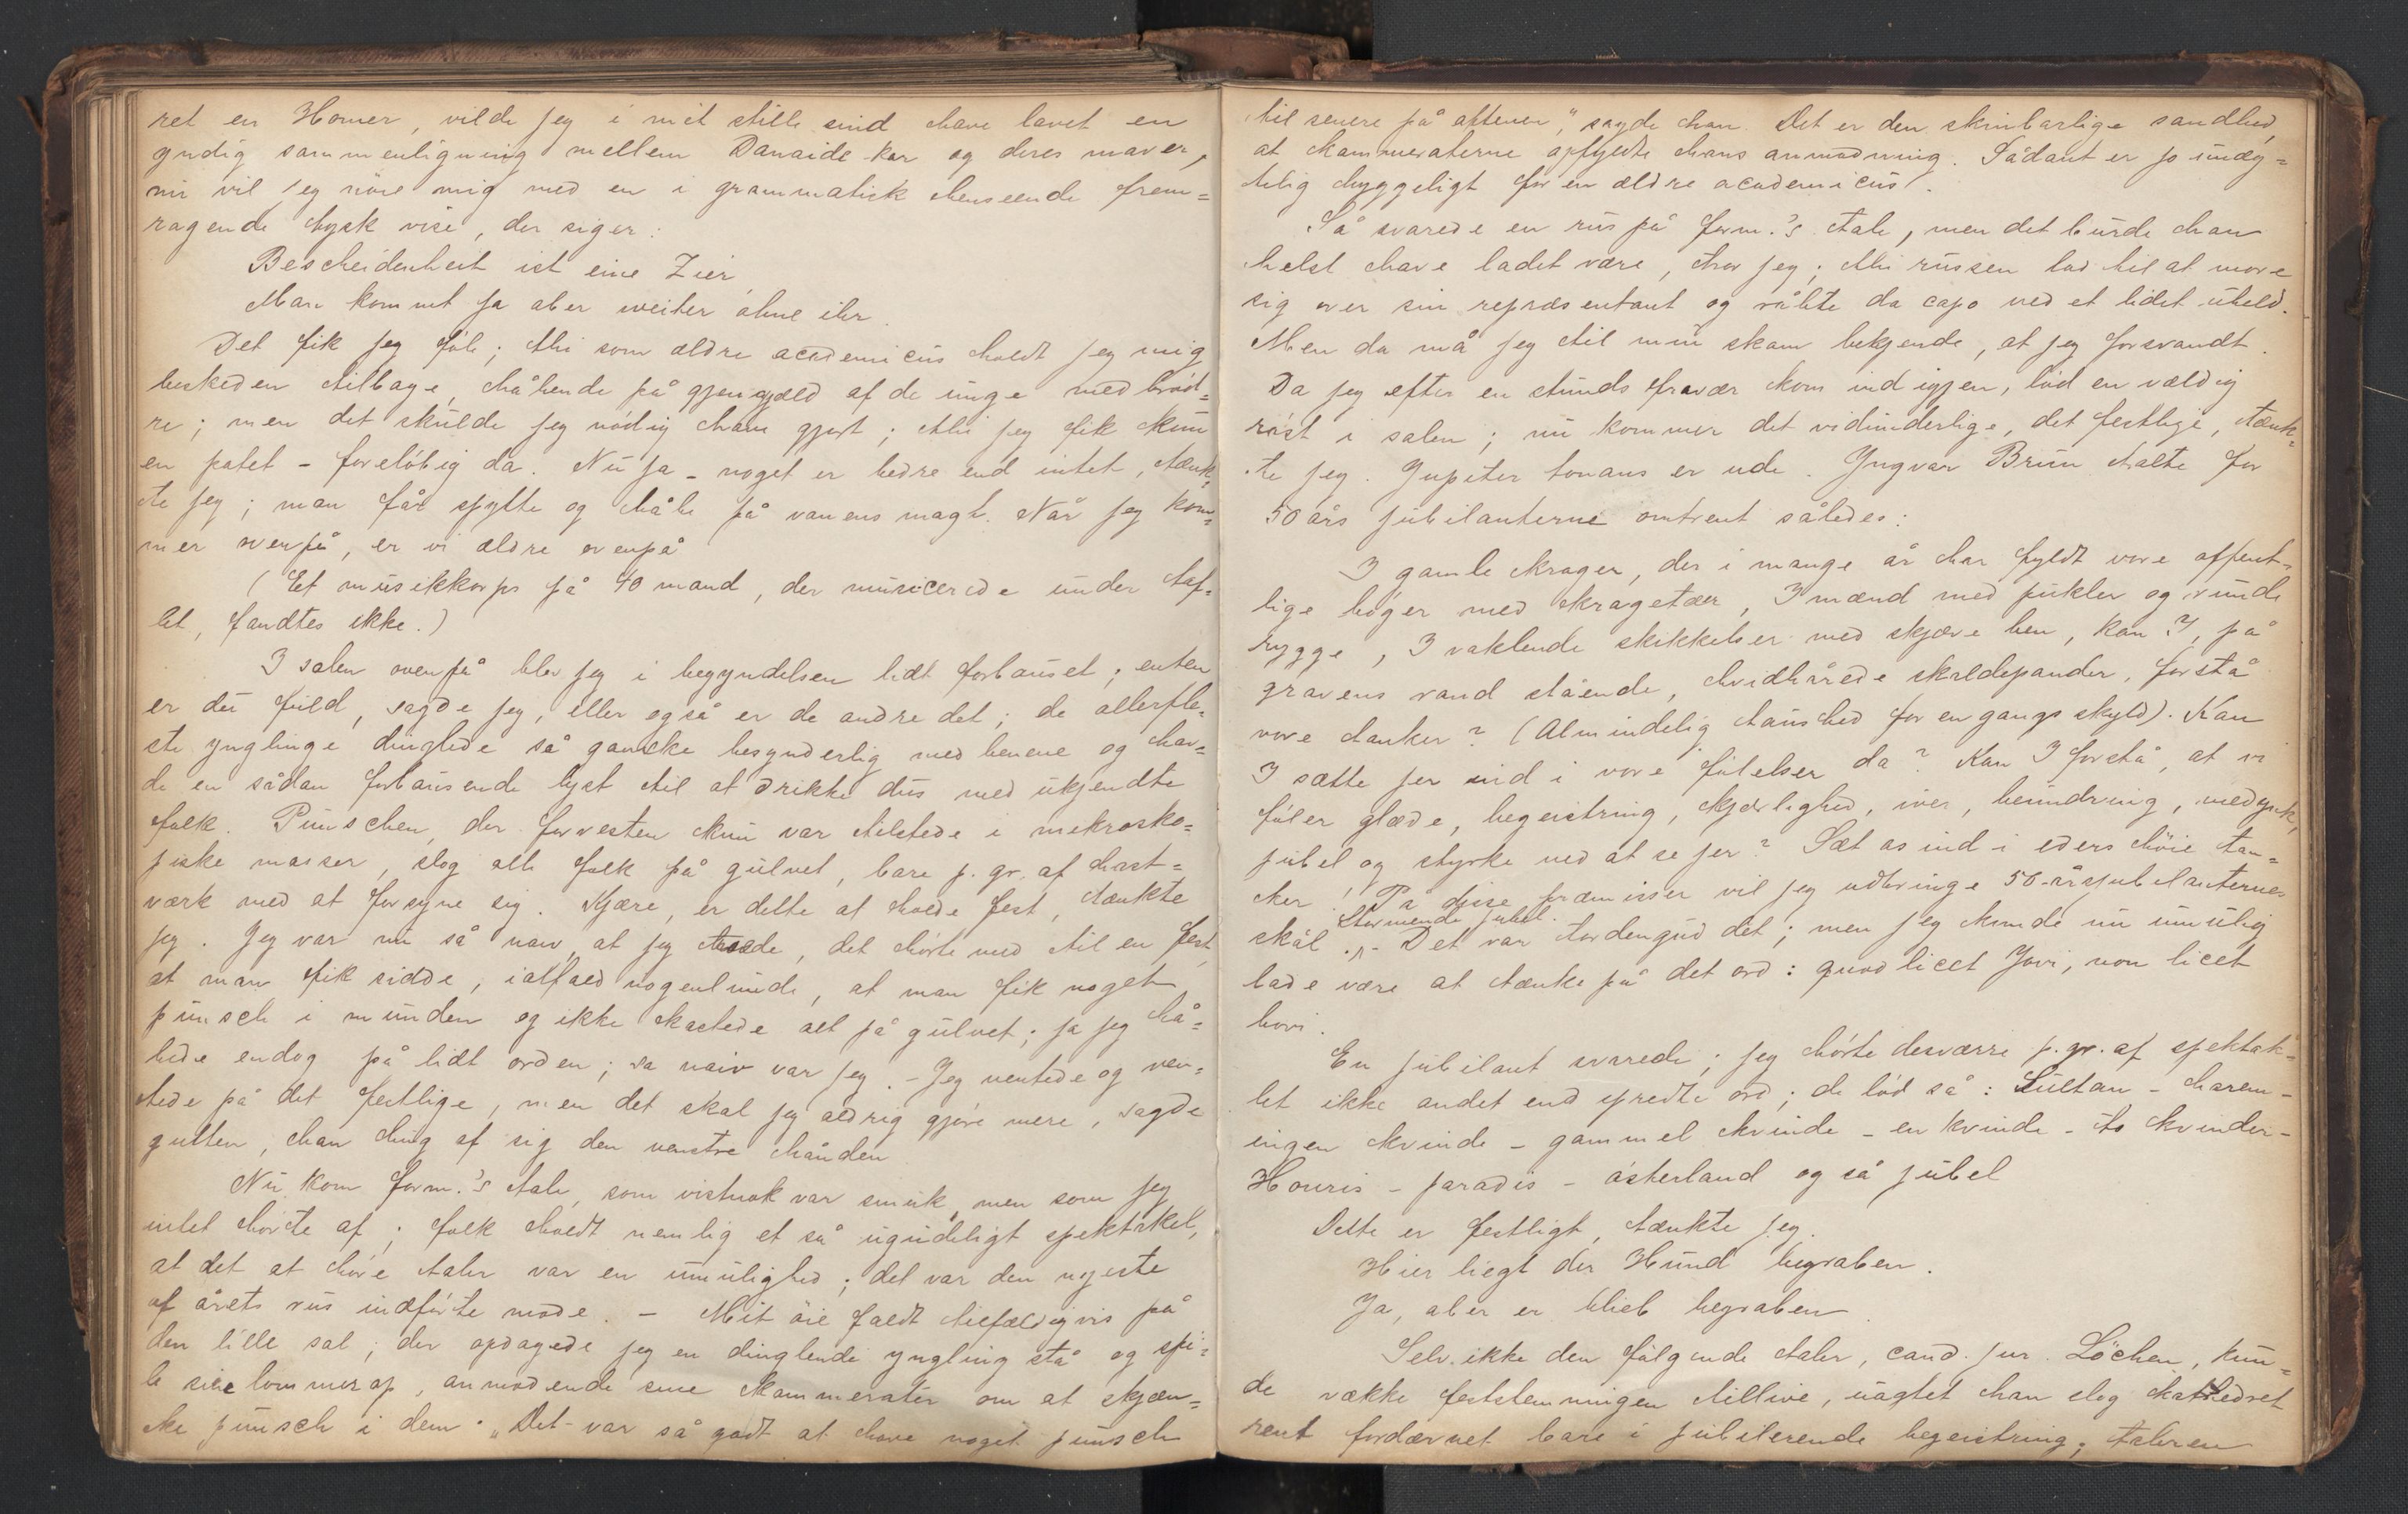 ret en Homer, vilde jeg i mit stille sind have lavet en
yndig sammenligning mellem Danaide-kar og deres maver,
nu vil jeg nöie mig med en i grammatisk henseende frem=
ragende tysk vise, der siger:
Bescheidenheit ist eine Zier
Man kommt ja aber weiter ohne ihr.
Det fik jeg föle; thi som ældre academicus holdt jeg mig
beskeden tilbage, håbende på gjengjæld af de unge medbröd=
re; men det skulde jeg nödig have gjort; thi jeg fik kun
en potet – forelöbig da. Nu ja – noget er bedre end intet, tænk=
te jeg; man får spytte og håbe på vanens magt. Når jeg kom=
mer ovenpå, er vi ældre ovenpå
(Et musikkorps på 40 mand, der musicerede under taf=
let, fandtes ikke.)
I salen ovenpå blev jeg i begyndelsen lidt forbauset; enten
er du fuld, sagde jeg, eller også er de andre det; de allerfle=
ste ynglinge dinglede så ganske besynderlig med benene og hav=
de en sådan forbausende lyst til at drikke dus med ukjendte
folk. Punschen, der forresten kun var tilstede i mikrosko=
piske masser, slog alle folk på gulvet, bare p. gr. af hast=
værk med at forsyne sig. Kjære, er dette at holde fest, tænkte
jeg. Jeg var nu så naiv, at jeg troede, det hörte med til en fest,
at man fik sidde, ialfald nogenlunde, at man fik noget
punsch i munden og ikke kastede alt på gulvet; ja jeg hå=
bede endog på lidt orden; sa naiv var jeg. – Jeg ventede og ven=
tede på det festlige, men det skal jeg aldrig gjöre mere, sagde
gutten, han hug af sig den venstre hånden
Nu kom form.'s tale, som vistnok var smuk, men som jeg
intet hörte af; folk holdt nemlig et så ugudeligt spektakel,
at det at höre taler var en umulighed; det var den nyeste
af årets rus indförte mode. – Mit öie faldt tilfældigvis på
den lille sal; der opdagede jeg en dinglende yngling stå og spi=
le sine lommer op, anmodende sine kammerater om at skjæn=
ke punsch i dem. „Det var så godt at have noget punsch
til senere på aftenen," sagde han. Det er den skinbarlige sandhed,
at kammeraterne opfyldte hans anmodning. Sådant er jo undy=
telig hyggeligt for en ældre academicus.
Så svarede en rus på form.'s tale, men det burde han
helst have ladet være, tror jeg; thi russen lod til at more
sig over sin repræsentant og råbte da capo ved et lidet uheld.
Men da må jeg til min skam bekjende, at jeg forsvandt.
Da jeg efter en stunds fravær kom ind igjen, löd en vældig
röst i salen; nu kommer det vidunderlige, det festlige, tænk=
te jeg. Jupiter tonans er ude. Yngvar Brun talte for
50 års jubilanterne omtrent således:
I gamle krager, der i mange år har fyldt vore offent=
lige böger med kragetæer, I mænd med pukler og runde
rygge, I vaklende skikkelser med skjæve ben, kan I, på
gravens rand stående, hvidhårede skaldepander, forstå
vore tanker? (Almindelig taushed for en gangs skyld). Kan
I sætte jer ind i vore fölelser da? Kan I forstå, at vi
föler glæde, begeistring, kjærlighed, iver, beundring, medynk,
jubel og styrke ved at se jer? Sæt os ind i eders höie tan=
ker! På disse præmisser vil jeg udbringe 50-årsjubilanternes
Stormende jubel.
skål. – Det var tordengud det; men jeg kunde nu umulig
lade være at tænke på det ord: quod licet Jovi, non licet
bovi.
En jubilant svarede; jeg hörte desværre p. gr. af spektak=
let ikke andet end spredte ord; de löd så: Sultan – harem –
ingen kvinde – gammel kvinde – en kvinde – to kvinder –
Houris – paradis – österland og så jubel
Dette er festligt, tænkte jeg.
Hier liegt der Hund begraben.
Ja, aber er blieb begraben
Selv ikke den fölgende taler, cand. jur. Löchen, kun=
de vække feststemningen tillive, uagtet han slog kathedret
rent fordærvet bare i jubilerende begeistring; taleren